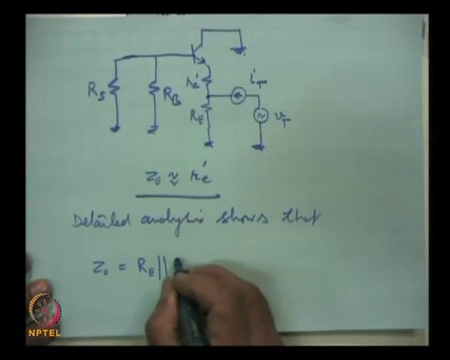 R_S R_B r'_e R_E i_T v_T
Z_0 ≈ r'_e
Detailed analysis shows that
Z_0 = R_E ||
NPTEL